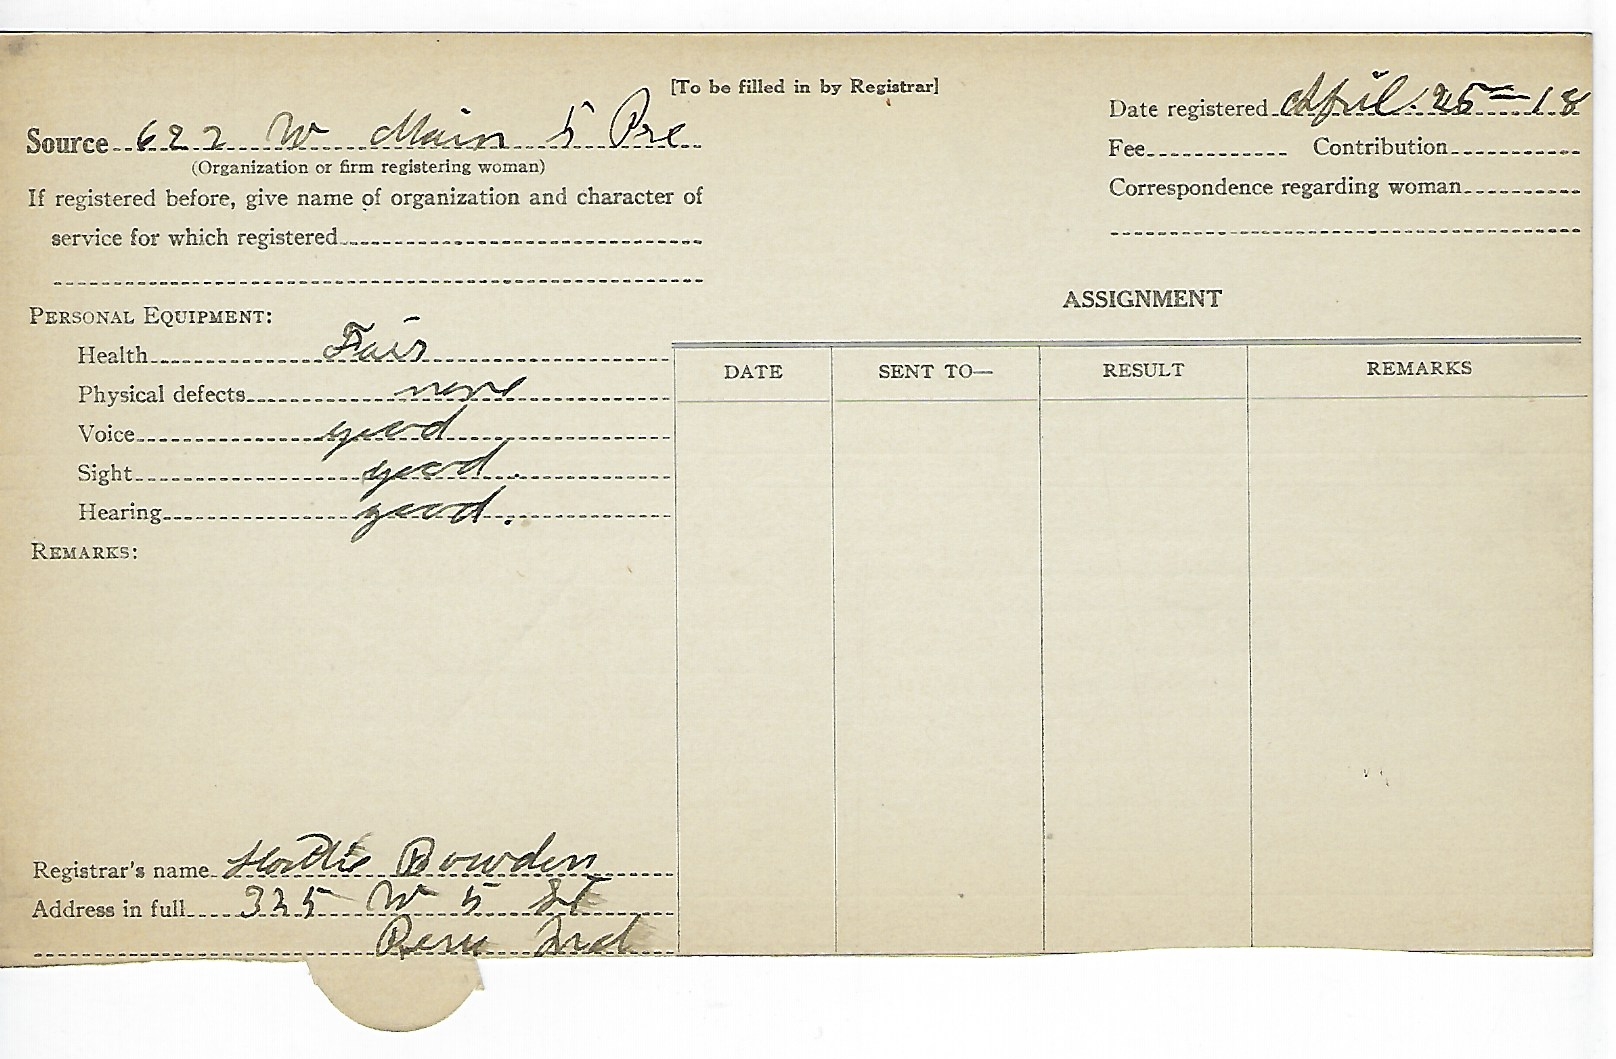 [To be filled in by Registrar]
Source 622 W Main 5 Pre
(Organization or firm registering woman)
If registered before, give name of organization and character of
service for which registered
Date registered April 25 = 18
Fee Contribution
Correspondence regarding woman
PERSONAL EQUIPMENT:
Health Fair
Physical defects none
Voice good
Sight good.
Hearing good.
REMARKS:
Registrar's name Hattie Bowden
Address in full 325 W 5 St
Peru Ind
ASSIGNMENT
DATE SENT TO— RESULT REMARKS